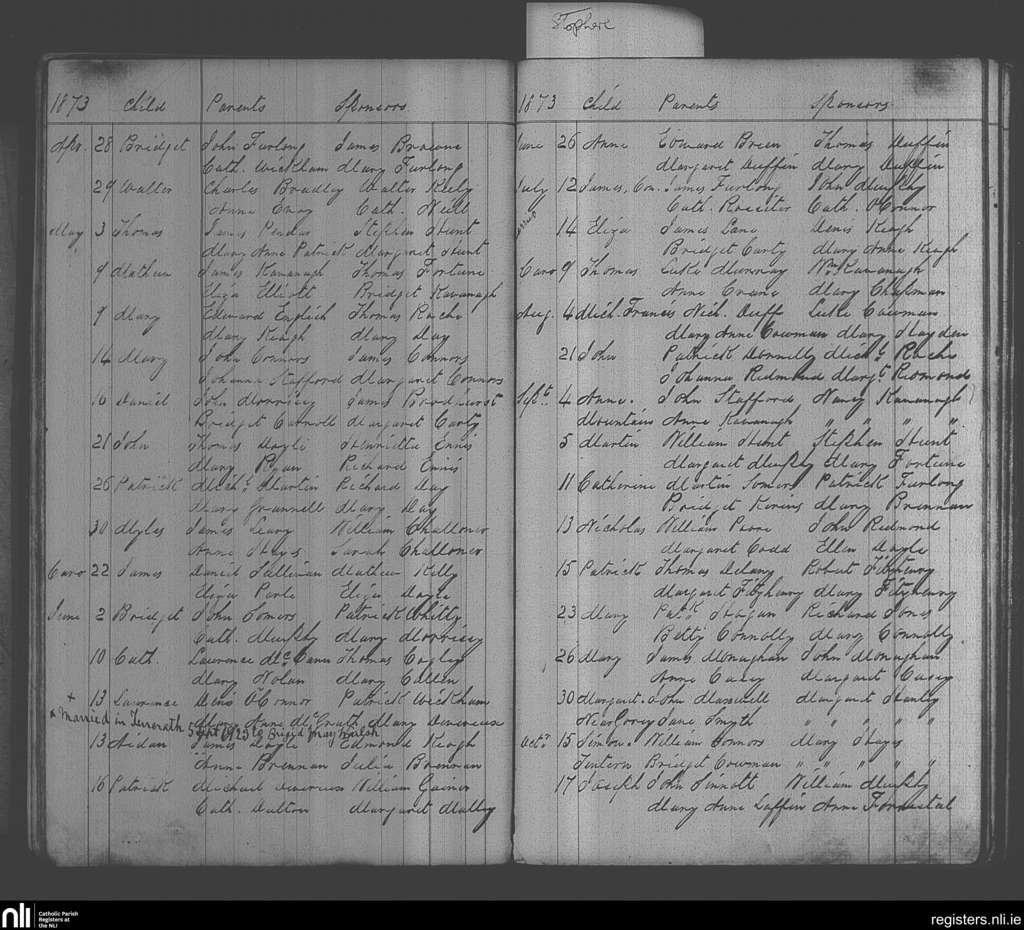 1873 Child Parents Sponsors
Apr. 28 Bridget John Furlong James Browne
Cath. Wickham Mary Furlong
29 Walter Charles Bradley Walter Kiely
Anne Enoy Cath. Neill
May 3 Thomas James Pender Stephen Hunt
Mary Anne Patrick Margaret Hunt
9 Mathew James Kavanagh Thomas Fortune
Eliza Elliott Bridget Kavanagh
9 Mary Edward English Thomas Roche
Mary Keogh Mary Day
14 Mary John Connors James Connors
Johanna Stafford Margaret Connors
16 Daniel John Morrisey James Broadhurst
Bridget Carroll Margaret Carty
21 John Thomas Doyle Henrietta Ennis
Mary Ryan Richard Ennis
26 Patrick Michl. Martin Richard Day
Mary Grannell Mary Day
30 Myles James Leary William Challoner
Anne Hayes Sarah Challoner
22 James Daniel Sullivan Mathew Kelly
Eliza Parle Eliza Doyle
June 2 Bridget John Somers Patrick Whitty
Cath. Murphy Mary Morrisey
10 Cath. Lawrence McCann Thomas Cogley
Mary Nolan Mary Cullen
+ 13 Lawrence Denis O'Connor Patrick Wickham
Mary Anne McGrath Mary Devereux
x Married in Terenath 5 Sept 1925 to Brigid May Walsh
13 Aidan James Doyle Edmond Keogh
Anne Brennan Julia Brennan
16 Patrick Michael Devereux William Gainor
Cath. Dalton Margaret Malley
Stephen
1873 Child Parents Sponsors
June 26 Anne Edward Breen Thomas Duffin
Margaret Duffin Mary Duffin
July 12 James, Con. James Furlong John Murphy
Cath. Rossiter Cath. O'Connor
14 Eliza James Lane Denis Keogh
Bridget Carty Mary Anne Keogh
9 Thomas Luke Murray Wm. Kavanagh
Anne Crane Mary Chapman
Aug. 4 Mich. Francis Nich. Duff Luke Cowman
Mary Anne Cowman Mary Hayden
21 John Patrick Donnelly Michl. Roche
Johanna Redmond Margt. Redmond
Sept. 4 Anne. John Stafford Nancy Kavanagh
Mountain Anne Kavanagh " " "
5 Martin William Hunt Stephen Hunt
Margaret Murphy Mary Fortune
11 Catherine Martin Somers Patrick Furlong
Bridget Kerins Mary Brennan
13 Nicholas William Poore John Redmond
Margaret Codd Ellen Doyle
15 Patrick Thomas Delany Robert Fitzhenry
Margaret Fitzhenry Mary Fitzhenry
23 Mary Patk. Hogan Richard Jones
Betty Connolly Mary Connolly
26 Mary James Monaghan John Monaghan
Anne Casey Margaret Casey
30 Margaret. John Masswell Margaret Hanley
Jane Smyth " " " "
Octr. 15 Simon. William Connors Mary Hayes
Tintern Bridget Cowman " " " "
17 Joseph John Sinnott William Murphy
Mary Anne Laffin Anne Forrestal
nli Catholic Parish
Registers at
the NLI
registers.nli.ie